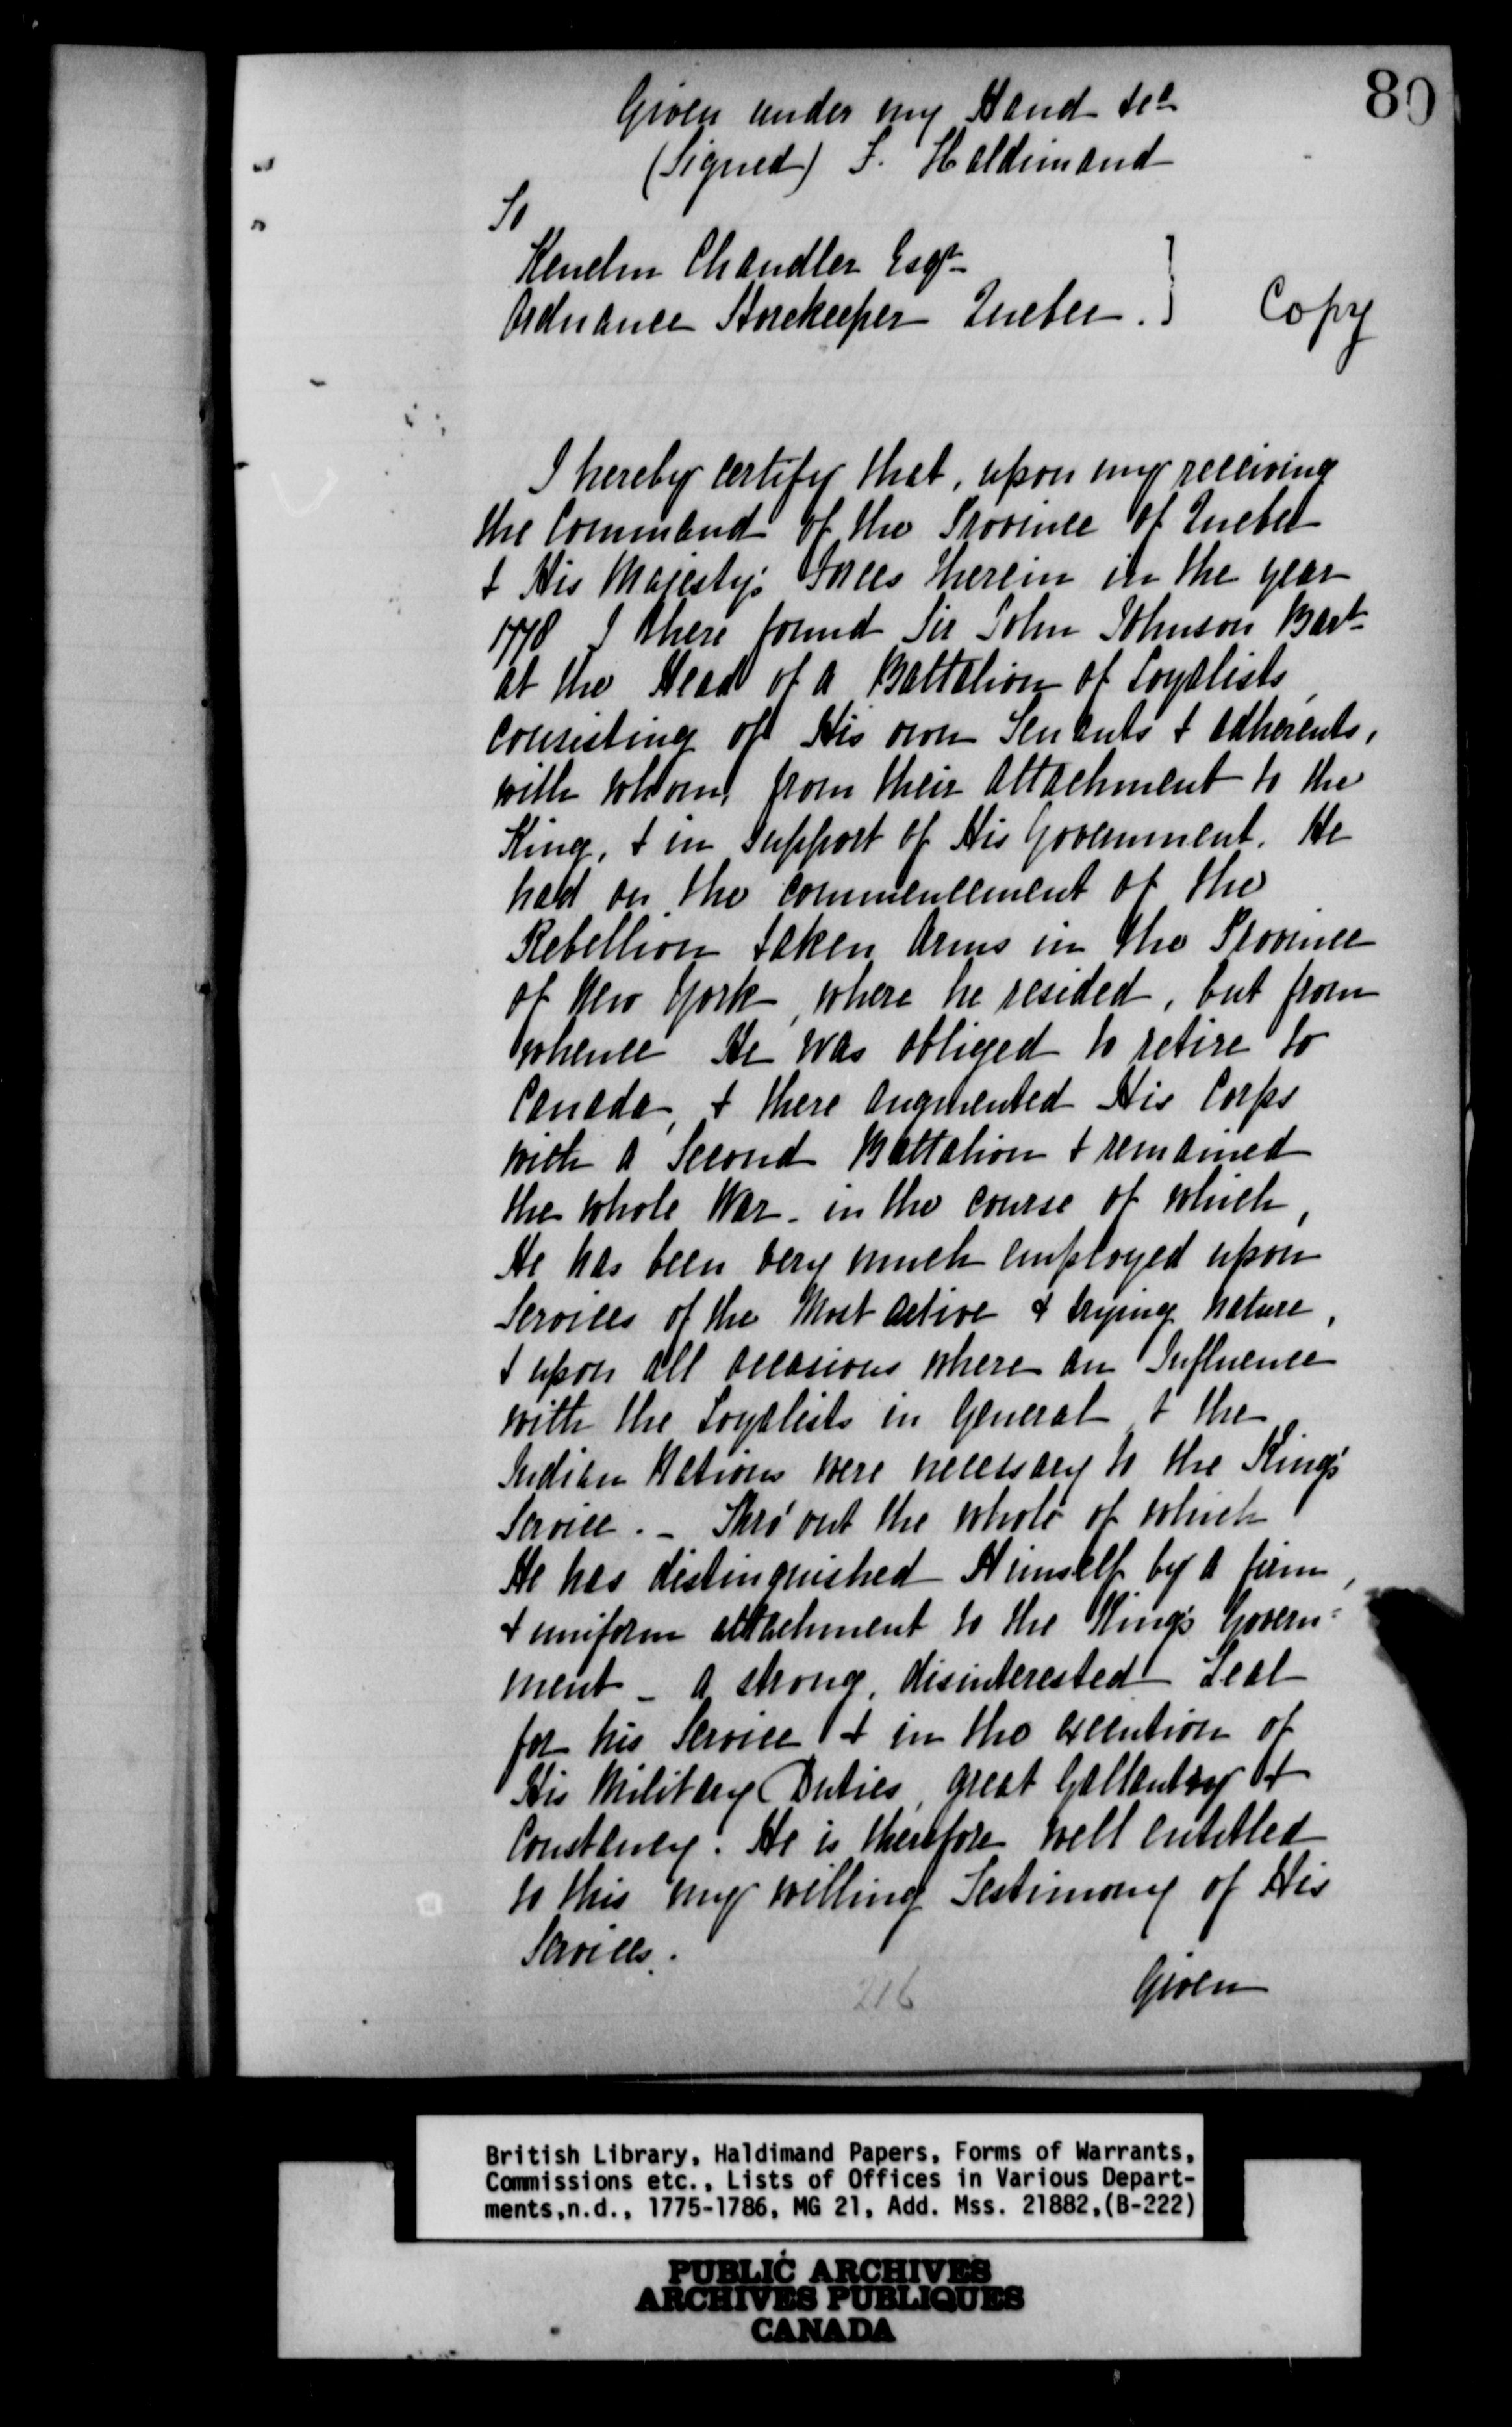 80
Given under my Hand &c.
(Signed) F. Haldimand
To
Kenelm Chandler Esqr.
Ordnance Storekeeper Quebec. } Copy
I hereby certify that, upon my receiving
the Command of the Province of Quebec
& His Majesty's Forces therein in the year
1778 I there found Sir John Johnson Bart.
at the Head of a Battalion of Loyalists,
consisting of His own Tenants & adherents,
with whom, from their attachment to the
King, & in support of His Government. He
had on the commencement of the
Rebellion taken Arms in the Province
of New York, where he resided, but from
whence He was obliged to retire to
Canada, & there augmented His Corps
with a Second Battalion & remained
the whole War - in the course of which,
He has been very much employed upon
Services of the Most active & trying nature,
& upon all occasions where an Influence
with the Loyalists in General & the
Indian Nations were necessary to the King's
Service. - Thro'out the whole of which
He has distinguished Himself by a firm,
& uniform attachment to the King's Govern=
ment - a strong, disinterested Zeal
for his Service & in the execution of
His Military Duties, great Gallantry &
Constancy. He is therefore well entitled
to this my willing Testimony of His
Services.
216
Given
British Library, Haldimand Papers, Forms of Warrants,
Commissions etc., Lists of Offices in Various Depart-
ments,n.d., 1775-1786, MG 21, Add. Mss. 21882,(B-222)
PUBLIC ARCHIVES
ARCHIVES PUBLIQUES
CANADA